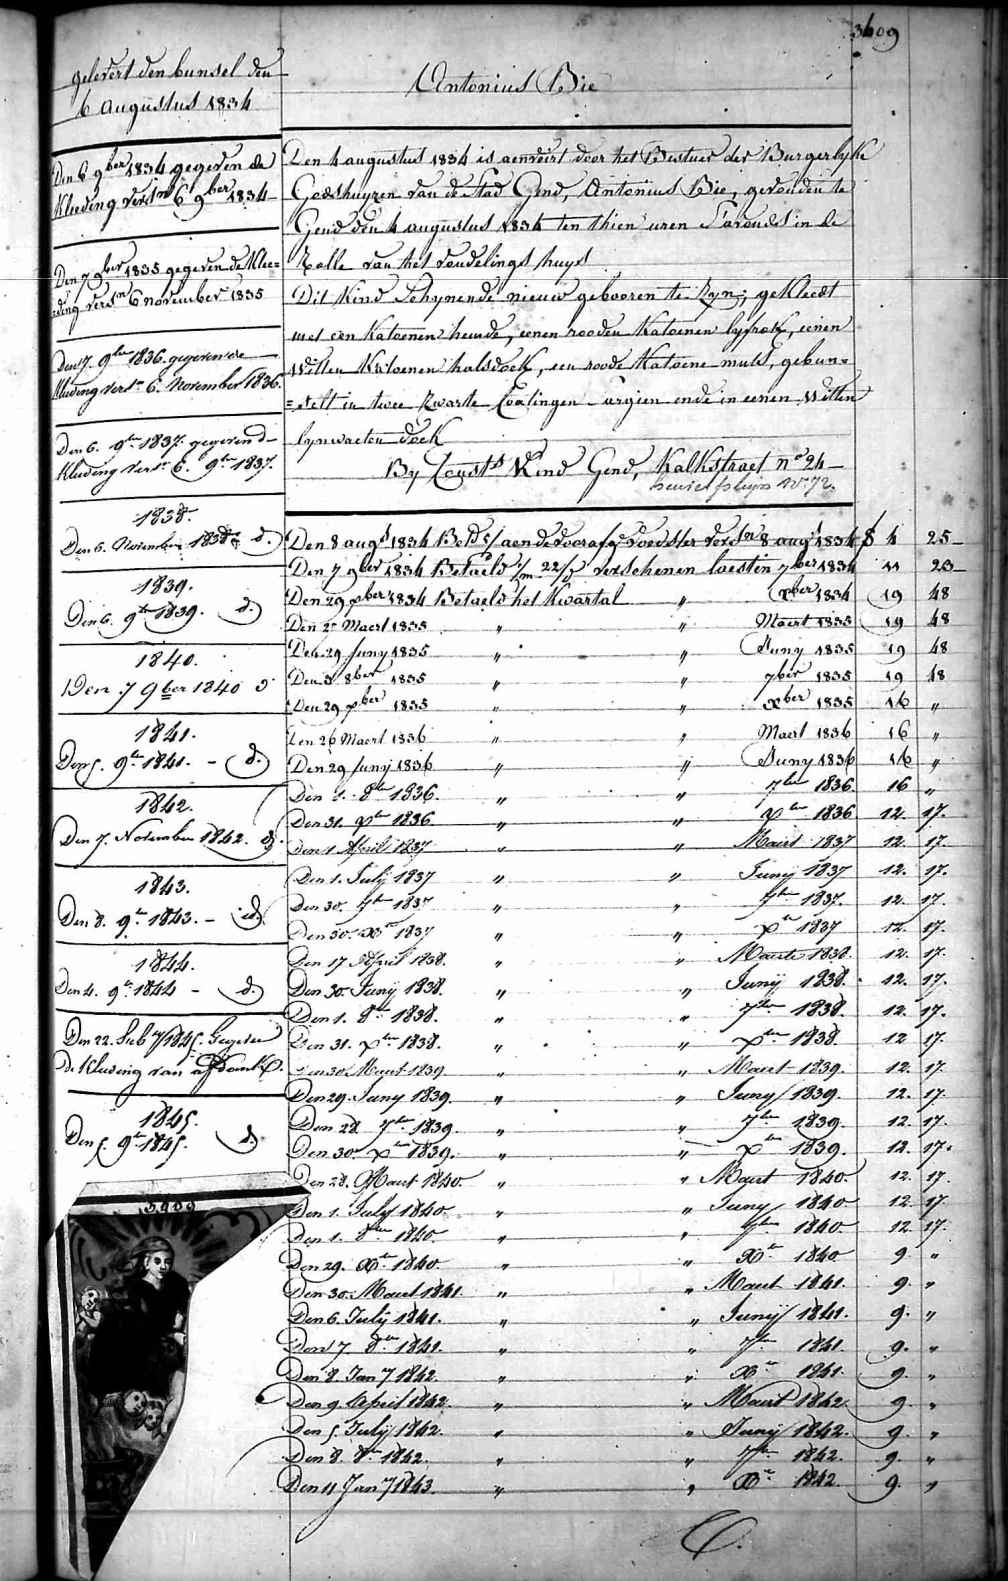 3609
gelevert den bunsel den
6 augustus 1834
Antonius Bie
Den 6 9ber 1834 gegeven de
Kleeding versn 6 9ber 1834
Den 7 9ber 1835 gegeven de Klee=
ding versn 6 november 1835
Den 7. 9ber 1836. gegeven de
Kleeding versn 6. November 1836.
Den 6. 9br 1837. gegeven d
Kleeding versn 6. 9br 1837.
1838.
Den 6. November 1838 d.
1839.
Den 6. 9br 1839. d.
1840.
Den 7 9ber 1840 d
1841.
Den 5. 9br 1841. - d.
1842.
Den 7. November 1842. d.
1843.
Den 8. 9br 1843. - d.
1844.
Den 4. 9br 1844 - d.
Den 22. Feb 1845. Gegeven
de Kleeding van
1845.
Den 5. 9br 1845. d.
3409
Den 4 augustus 1834 is aenveirt door het Bestuer der Burgerlyke
Godshuyzen van de Stad Gend, Antonius Bie, gevonden te
Gend den 4 augustus 1834 ten thien uren s'avonds in de
Rolle van het vondelings huys
Dit Kind Schynende nieuw gebooren te zyn; gekleedt
met een Katoenen hemde, eenen rooden Katoenen lyfrok, eenen
Witten Katoenen halsdoek, een roode Katoene muts, gebun=
=selt in twee zwarte en in eenen Witten
lynwaeten doek
By Kind Gend, Kalkstraet no 24
No 72.
Den 8 augt 1834 Betd aen de voedster versn 8 augt 1834 f 4 25
Den 7 9ber 1834 Betaeld 1/m 22/d verschenen 7ber 1834 11 23
Den 29 xber 1834 Betaeld het Kwartal " xber 1834 19 48
Den 2 Maert 1835 " " Maert 1835 19 48
Den 29 Juny 1835 " " Juny 1835 19 48
Den 3 8ber 1835 " " 7ber 1835 19 48
Den 29 xber 1835 " " xber 1835 16 "
Den 26 Maert 1836 " " Maert 1836 16 "
Den 29 Juny 1836 " " Juny 1836 16 "
Den 1. 8br 1836. " " 7br 1836. 16 "
Den 31. xbr 1836. " " xbr 1836 12. 17.
Den 1 April 1837 " " Maert 1837 12. 17.
Den 1. July 1837 " " Juny 1837 12. 17.
Den 30. 7br 1837 " " 7br 1837. 12. 17.
Den 30. Xbr 1837 " " xbr 1837 12. 17.
Den 17 April 1838. " " Maerte 1838. 12. 17.
Den 30. Juny 1838. " " Juny 1838. 12. 17.
Den 1. 8br 1838. " " 7br 1838. 12. 17.
Den 31. xbr 1838. " " xbr 1838. 12 17.
Den 30. Maert 1839 " " Maert 1839. 12. 17.
Den 29. Juny 1839. " " Juny 1839. 12. 17.
Den 28. 7br 1839. " " 7br 1839. 12. 17.
Den 30. xbr 1839. " " xbr 1839. 12. 17.
Den 28. Maert 1840. " " Maert 1840. 12. 17.
Den 1. July 1840. " " Juny 1840 12. 17.
Den 1. 8br 1840 " " 7br 1840. 12. 17.
Den 29. Xbr 1840. " " Xbr 1840 9. "
Den 30. Maert 1841. " " Maert 1841. 9. "
Den 6. July 1841. " " Juny 1841. 9. "
Den 7 8br 1841. " " 7br 1841. 9. "
Den 8. Jan 1842. " " Xbr 1841. 9. "
Den 9. April 1842. " " Maert 1842. 9. "
Den 5. July 1842. " " Juny 1842. 9. "
Den 8. 8br 1842. " " 7br 1842. 9. "
Den 11 Jan 1843. " " Xbr 1842. 9. "